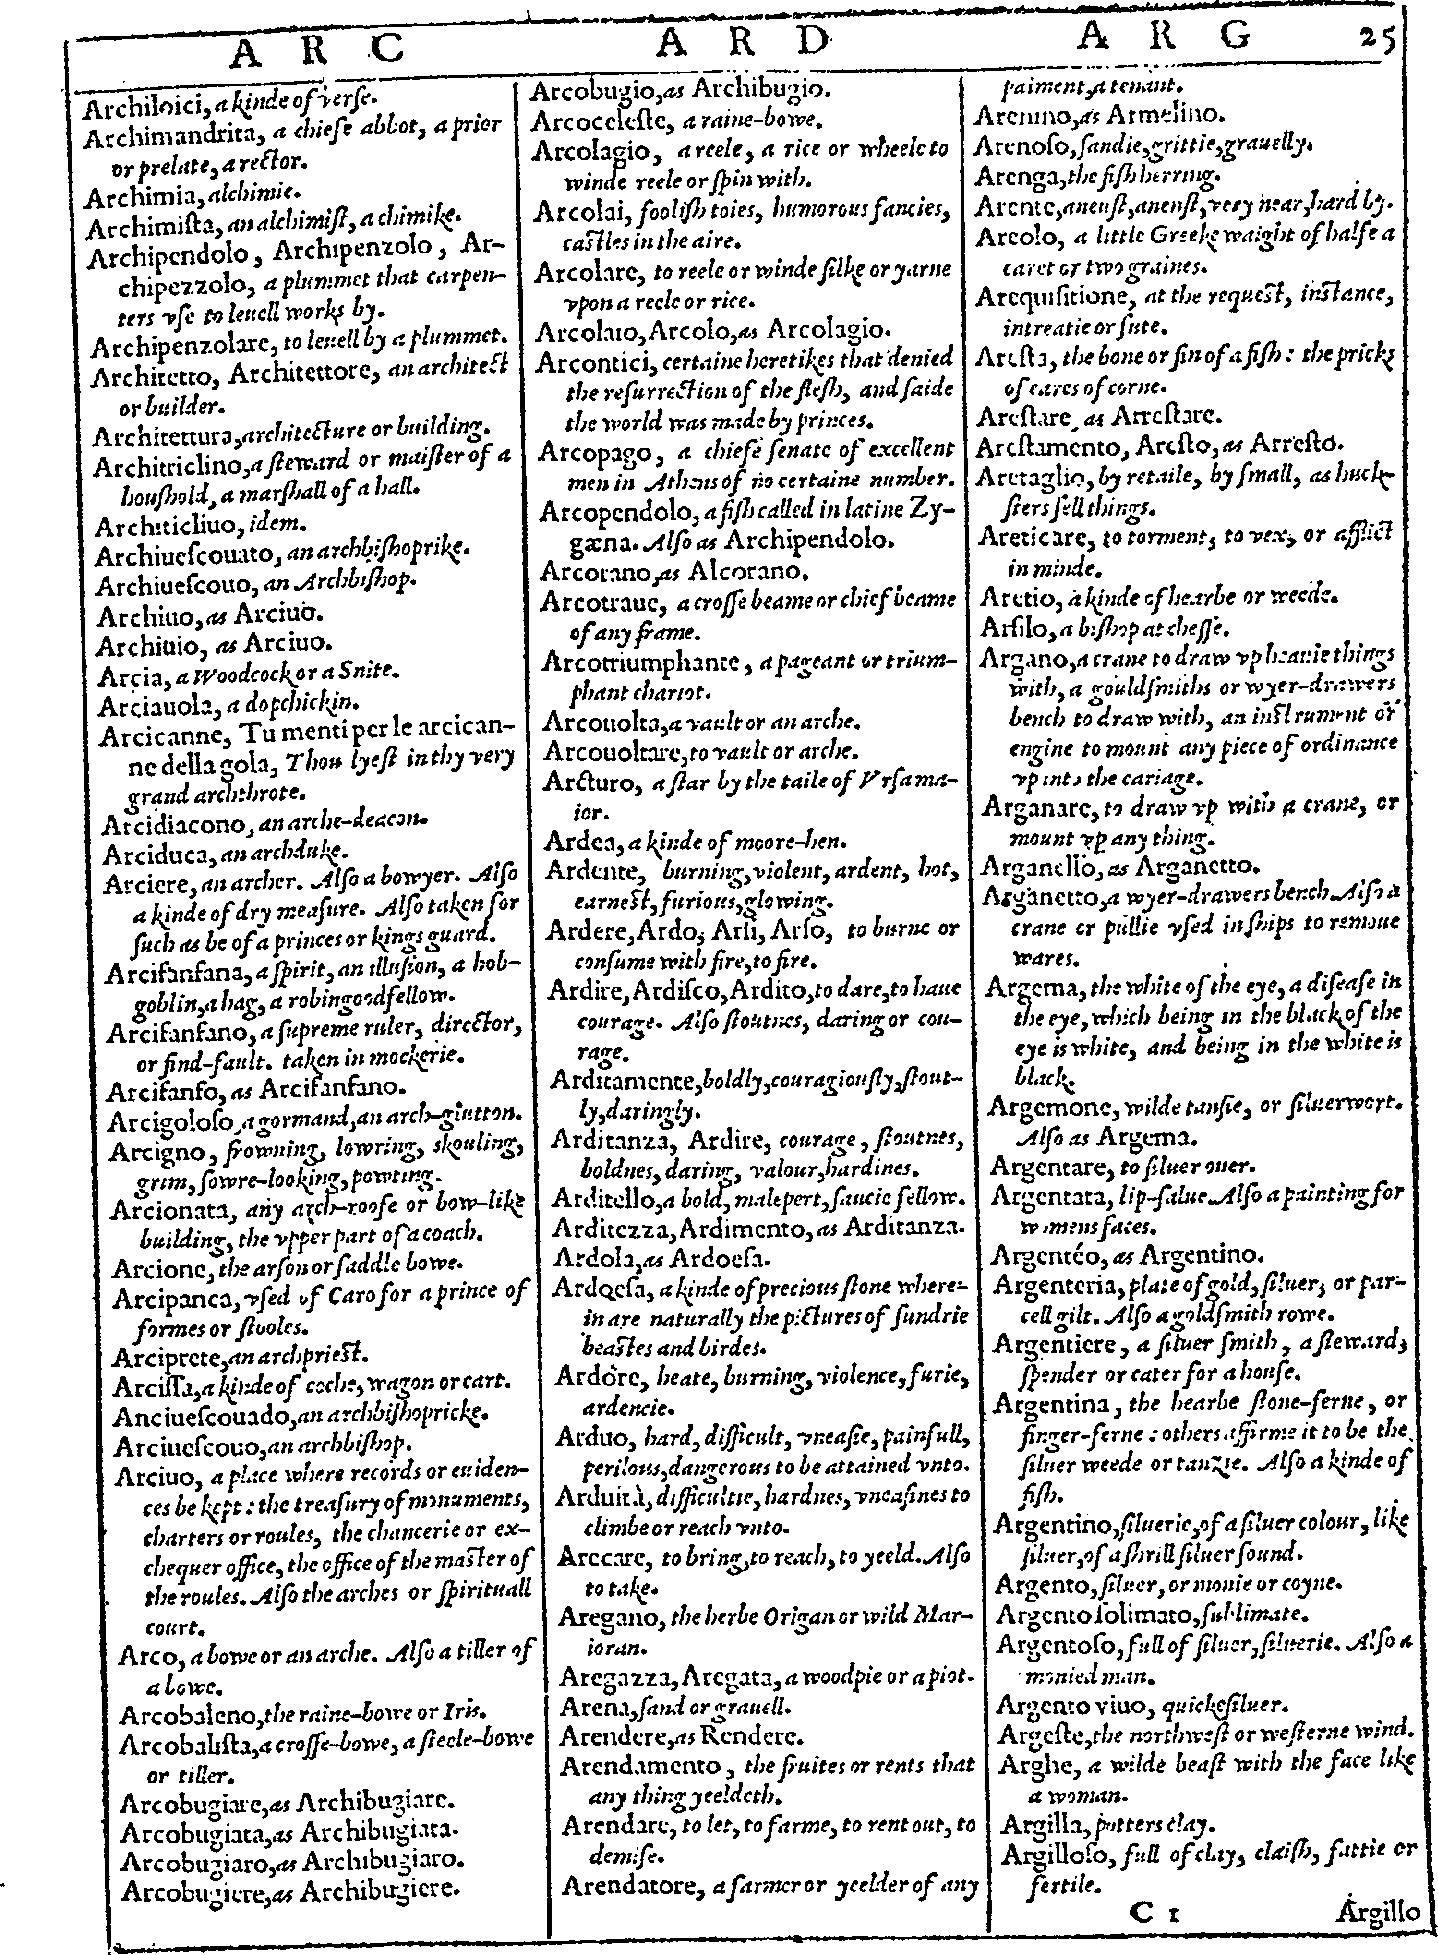 A R C
A R D
A R G 25
Archiloici, a kinde of verse.
Archimandrita, a chiefe abbot, a prior
or prelate, a rector.
Archimia, alchimie.
Archimiſta, an alchimiſt, a chimike.
Archipendolo, Archipenzolo, Ar-
chipezzolo, a plummet that carpen-
ters vſe to leuell works by.
Archipenzolare, to leuell by a plummet.
Architetto, Architettore, an architect
or builder.
Architettura, architecture or building.
Architriclino, a ſteward or maiſter of a
houſhold, a marſhall of a hall.
Architicliuo, idem.
Archiueſcouato, an archbiſhoprike.
Archiueſcouo, an Archbiſhop.
Archiuo, as Arciuo.
Archiuio, as Arciuo.
Arcia, a Woodcock or a Snite.
Arciauola, a dopchickin.
Arcicanne, Tu menti per le arcican-
ne della gola, Thou lyeſt in thy very
grand archthrote.
Arcidiacono, an arche-deacon.
Arciduca, an archduke.
Arciere, an archer. Alſo a bowyer. Alſo
a kinde of dry meaſure. Alſo taken for
ſuch as be of a princes or kings guard.
Arcifanfana, a ſpirit, an illuſion, a hob-
goblin, a hag, a robingoodfellow.
Arcifanfano, a ſupreme ruler, director,
or find-fault. taken in mockerie.
Arcifanfo, as Arcifanfano.
Arcigoloſo, a gormand, an arch-glutton.
Arcigno, frowning, lowring, skouling,
grim, ſowre-looking, powting.
Arcionata, any arch-roofe or bow-like
building, the vpper part of a coach.
Arcione, the arſon or ſaddle bowe.
Arcipanca, vſed of Caro for a prince of
formes or ſtooles.
Arciprete, an archprieſt.
Arciſſa, a kinde of coche, wagon or cart.
Anciueſcouado, an archbiſhopricke.
Arciueſcouo, an archbiſhop.
Arciuo, a place where records or euiden-
ces be kept: the treaſury of monuments,
charters or roules, the chancerie or ex-
chequer office, the office of the maſter of
the roules. Alſo the arches or ſpirituall
court.
Arco, a bowe or an arche. Alſo a tiller of
a bowe.
Arcobaleno, the raine-bowe or Iris.
Arcobaliſta, a croſſe-bowe, a ſteele-bowe
or tiller.
Arcobugiare, as Archibugiare.
Arcobugiata, as Archibugiata.
Arcobugiaro, as Archibugiaro.
Arcobugiere, as Archibugiere.
Arcobugio, as Archibugio.
Arcoceleſte, a raine-bowe.
Arcolagio, a reele, a rice or wheele to
winde reele or ſpin with.
Arcolai, fooliſh toies, humorous fancies,
caſtles in the aire.
Arcolare, to reele or winde ſilke or yarne
vpon a reele or rice.
Arcolaio, Arcolo, as Arcolagio.
Arcontici, certaine heretikes that denied
the reſurrection of the fleſh, and ſaide
the world was made by princes.
Arcopago, a chiefe ſenate of excellent
men in Athens of no certaine number.
Arcopendolo, a fiſh called in latine Zy-
gæna. Alſo as Archipendolo.
Arcorano, as Alcorano.
Arcotraue, a croſſe beame or chief beame
of any frame.
Arcotriumphante, a pageant or trium-
phant chariot.
Arcouolta, a vault or an arche.
Arcouoltare, to vault or arche.
Arcturo, a ſtar by the taile of Vrſa ma-
ior.
Ardea, a kinde of moore-hen.
Ardente, burning, violent, ardent, hot,
earneſt, furious, glowing.
Ardere, Ardo, Arſi, Arſo, to burne or
conſume with fire, to fire.
Ardire, Ardiſco, Ardito, to dare, to haue
courage. Alſo ſtoutnes, daring or cou-
rage.
Arditamente, boldly, couragiouſly, ſtout-
ly, daringly.
Arditanza, Ardire, courage, ſtoutnes,
boldnes, daring, valour, hardines.
Arditello, a bold, malepert, ſaucie fellow.
Arditezza, Ardimento, as Arditanza.
Ardola, as Ardoeſa.
Ardoeſa, a kinde of precious ſtone where-
in are naturally the pictures of ſundrie
beaſtes and birdes.
Ardore, heate, burning, violence, furie,
ardencie.
Arduo, hard, difficult, vneaſie, painfull,
perilous, dangerous to be attained vnto.
Arduità, difficultie, hardnes, vneaſines to
climbe or reach vnto.
Arecare, to bring, to reach, to yeeld. Alſo
to take.
Aregano, the herbe Origan or wild Mar-
ioran.
Aregazza, Aregata, a woodpie or a piot.
Arena, ſand or grauell.
Arendere, as Rendere.
Arendamento, the fruites or rents that
any thing yeeldeth.
Arendare, to let, to farme, to rent out, to
demiſe.
Arendatore, a farmer or yeelder of any
paiment, a tenant.
Arenino, as Armelino.
Arenoſo, ſandie, grittie, grauelly.
Arenga, the fiſh herring.
Arente, aneuſt, anenſt, very near, hard by.
Areolo, a little Greeke waight of halfe a
caret or two graines.
Arequiſitione, at the requeſt, inſtance,
intreatie or ſute.
Areſta, the bone or fin of a fiſh: the pricke
of eares of corne.
Areſtare, as Arreſtare.
Areſtamento, Areſto, as Arreſto.
Aretaglio, by retaile, by ſmall, as huck-
ſters ſell things.
Areticare, to torment, to vex, or afflict
in minde.
Aretio, a kinde of hearbe or weede.
Arfilo, a biſhop at cheſſe.
Argano, a crane to draw vp heauie things
with, a gouldſmiths or wyer-drawers
bench to draw with, an inſtrument or
engine to mount any piece of ordinance
vp into the cariage.
Arganare, to draw vp with a crane, or
mount vp any thing.
Arganello, as Arganetto.
Arganetto, a wyer-drawers bench Alſo a
crane or pullie vſed in ſhips to remoue
wares.
Argema, the white of the eye, a diſeaſe in
the eye, which being in the black of the
eye is white, and being in the white is
black.
Argemone, wilde tanſie, or ſiluerwort.
Alſo as Argema.
Argentare, to ſiluer ouer.
Argentata, lip-ſalue. Alſo a painting for
womens faces.
Argentéo, as Argentino.
Argenteria, plate of gold, ſiluer, or par-
cell gilt. Alſo a goldſmith rowe.
Argentiere, a ſiluer ſmith, a ſteward,
ſpender or cater for a houſe.
Argentina, the hearbe ſtone-ferne, or
finger-ferne: others affirme it to be the
ſiluer weede or tanzie. Alſo a kinde of
fiſh.
Argentino, ſiluerie, of a ſiluer colour, like
ſiluer, of a ſhrill ſiluer ſound.
Argento, ſiluer, or monie or coyne.
Argento ſolimato, ſublimate.
Argentoſo, full of ſiluer, ſiluerie. Alſo a
monied man.
Argento viuo, quickeſiluer.
Argeſte, the northweſt or weſterne wind.
Arghe, a wilde beaſt with the face like
a woman.
Argilla, potters clay.
Argilloſo, full of clay, claiſh, fattie or
fertile.
C 1 Argillo